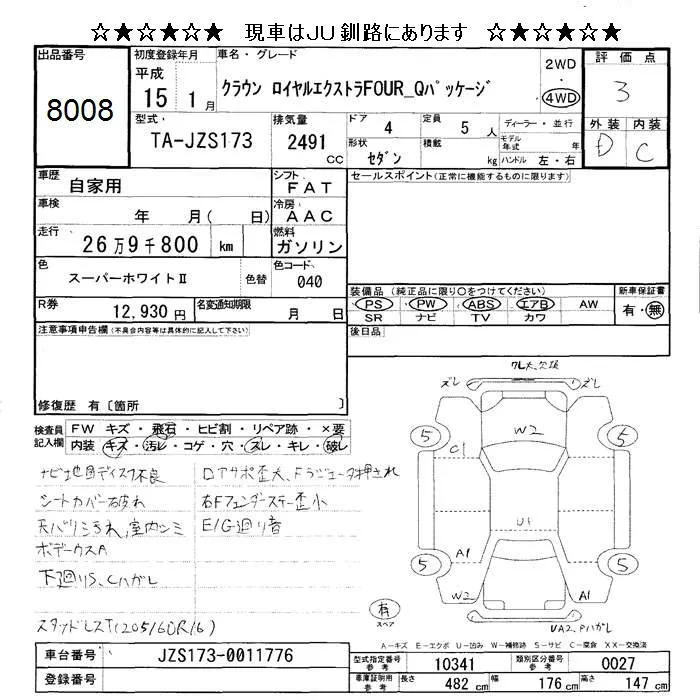 ☆★☆★☆★ 現車はJU釧路にあります ☆★☆★☆★
出品番号 初度登録年月 車名・グレード 2WD 評価点
8008 平成 15年 1月 クラウン ロイヤルエクストラFOUR_Qパッケージ 4WD 3
型式 排気量 ドア 定員 ディーラー・並行 外装 内装
TA-JZS173 2491 CC 4 5 人 モデル年式 年 D C
形状 セダン 積載 kg ハンドル 左・右
車歴 自家用 シフト FAT セールスポイント(正常に機能するものに限ります)
車検 年 月( 日) 冷房 AAC
走行 26万9千800 km 燃料 ガソリン
色 スーパーホワイトⅡ 色替 色コード 040
装備品 (純正品に限り○をつけてください) 新車保証書
R券 12,930円 名変通知期限 月 日 PS PW ABS エアB AW 有・無
SR ナビ TV カワ
注意事項申告欄(不具合内容等は具体的に記入して下さい) 後日品
修復歴 有〔箇所 〕
検査員記入欄 FW キズ・飛石・ヒビ割・リペア跡・×要
内装 キズ・汚レ・コゲ・穴・スレ・キレ・破レ
ナビ地図ディスク不良
シートカバー破れ 右Fフェンダーステー歪小
天バリ汚れ,室内シミ E/G廻り音
下廻りS、Cハガレ
スタッドレスT(205/60R16)
スレ スレ
5 C1 W2 5
U1
5 A1 5
W2 A1
有 スペア
A-キズ E-エクボ U-凹み W-補修跡 S-サビ C-腐食 XX-交換済
車台番号 JZS173-0011776 型式指定番号 参考 10341 類別区分番号 参考 0027
登録番号 車庫証明用 参考 長さ 482 cm 幅 176 cm 高さ 147 cm